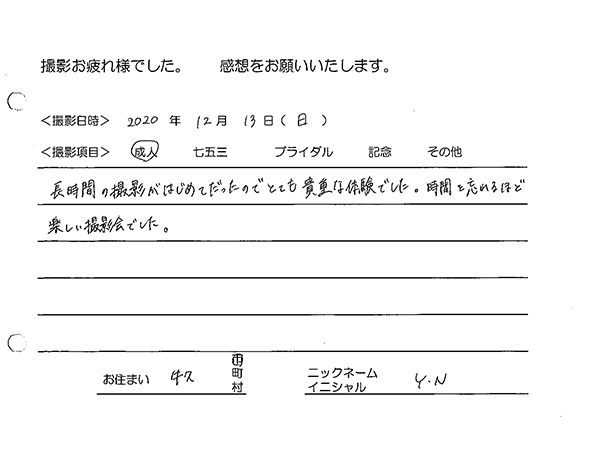 撮影お疲れ様でした。 感想をお願いいたします。
<撮影日時> 2020 年 12月 13日(日)
<撮影項目> 成人 七五三 ブライダル 記念 その他
長時間の撮影がはじめてだったのでとても貴重な体験でした。時間を忘れるほど
楽しい撮影会でした。
お住まい 牛久 市町村
ニックネーム
イニシャル Y.N